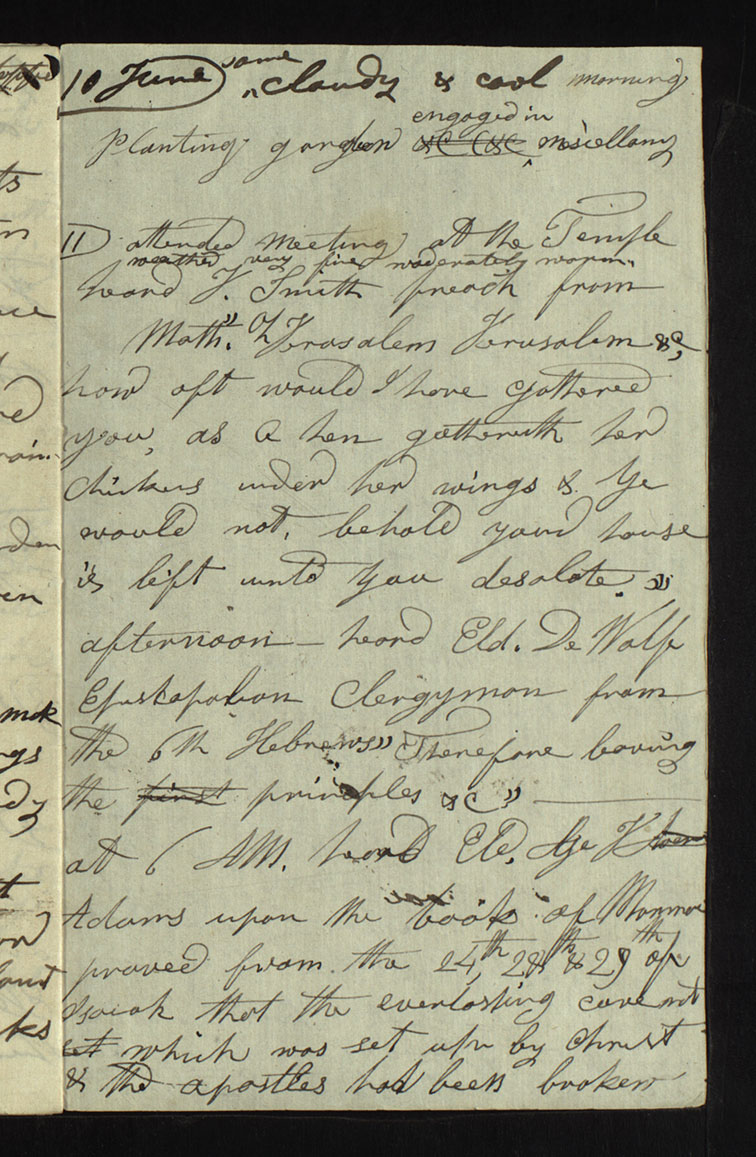 10 June some cloudy & cool morning
planting garden &C &C engaged in miscellany
11 attended meeting at the Temple
weather very fine moderately warm
heard J. Smith preach from
Math". Oh Jerusalem Jerusalem &C,
how oft would I have gathered
you, as a hen gathereth her
chickens under her wings & Ye
would not, behold your house
is left unto You desolate. "
afternoon — heard Eld. De Wolf
Episkopalian Clergyman from
the 6th Hebrews" Therefore leaving
the first principles &C" —
at 6 AM. heard Eld. Ge J
Adams upon the book of Mormon
proved from the 24th, 28th & 29th of
Isaiah that the everlasting covenant
set which was set up by Christ
& the apostles had been broken